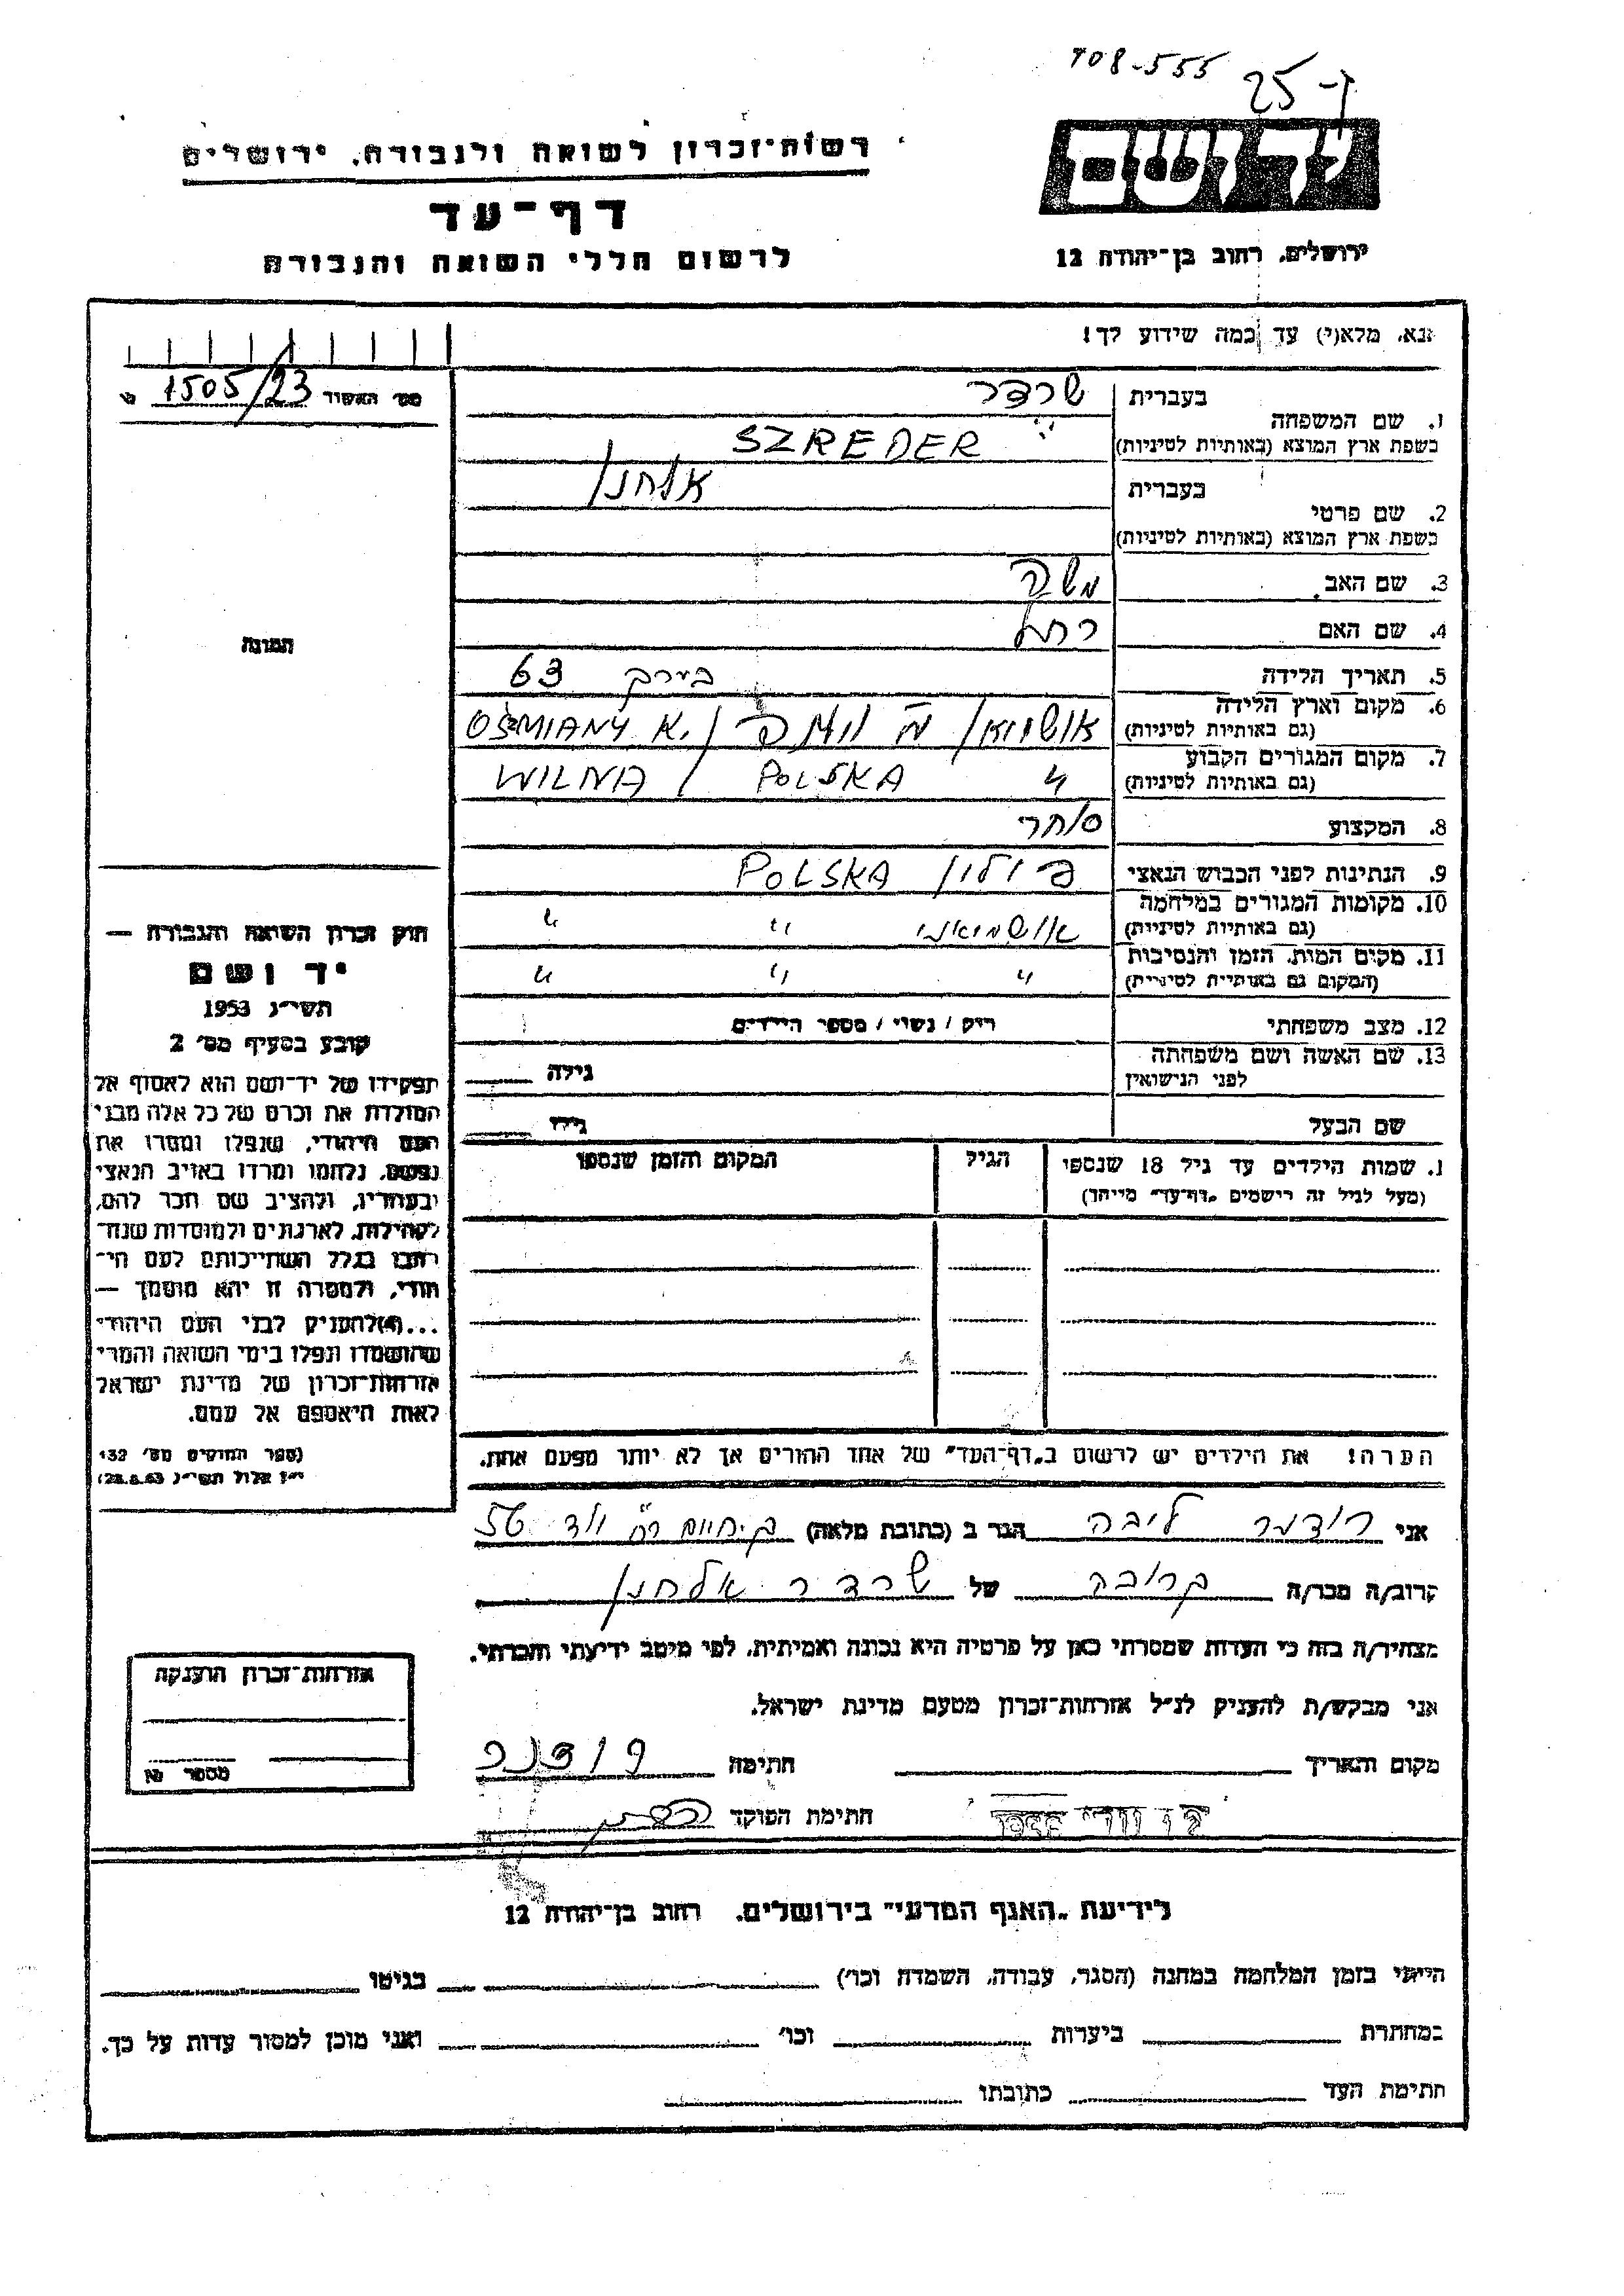 708-555
25-7
רשות־זכרון לשואה ולגבורה, ירושלים
דף־עד
לרשום חללי השואה והגבורה
יד ושם
ירושלים, רחוב בן־יהודה 12
נא, מלא(י) עד כמה שידוע לך!
מס׳ האשור 1505/23
1. שם המשפחה
בעברית שרדר
בשפת ארץ המוצא (באותיות לטיניות) SZREDER
2. שם פרטי
בעברית אלחנן
בשפת ארץ המוצא (באותיות לטיניות)
3. שם האב משה
4. שם האם רחל
5. תאריך הלידה בערך 63
6. מקום וארץ הלידה
(גם באותיות לטיניות) OŚMIANY K.
7. מקום המגורים הקבוע
(גם באותיות לטיניות) " POLSKA / WILNA
8. המקצוע סוחר
9. הנתינות לפני הכבוש הנאצי פולין POLSKA
10. מקומות המגורים במלחמה
(גם באותיות לטיניות) אושמיאני " "
11. מקום המות, הזמן והנסיבות
(המקום גם באותיות לטיניות) " " "
12. מצב משפחתי רווק / נשוי / מספר הילדים
13. שם האשה ושם משפחתה
לפני הנישואין גילה
שם הבעל גילו
1. שמות הילדים עד גיל 18 שנספו
(מעל לגיל זה רישמים „דף־עד״ מייחד)
הגיל
המקום והזמן שנספו
הערה! את הילדים יש לרשום ב„דף־העד״ של אחד ההורים אך לא יותר מפעם אחת.
תמונה
חוק זכרון השואה והגבורה —
יד ושם
תשי״ג 1953
קובע בסעיף מס׳ 2
תפקידו של יד־ושם הוא לאסוף אל
המולדת את זכרם של כל אלה מבני
העם היהודי, שנפלו ומסרו את
נפשם, נלחמו ומרדו באויב הנאצי
ובעוזריו, ולהציב שם וזכר להם,
לקהילות, לארגונים ולמוסדות שנח־
רבו בגלל השתייכותם לעם הי־
הודי, ולמטרה זו יהא מוסמך —
...(4)להעניק לבני העם היהודי
שהושמדו ונפלו בימי השואה והמרי
אזרחות־זכרון של מדינת ישראל
לאות היאספם אל עמם.
(ספר החוקים מס׳ 132
י״ז אלול תשי״ג 28.8.53)
אני רודמר ליבה הגר ב (כתובת מלאה) ק. חיים 56
קרוב/ה מכר/ה קרובה של שרדר אלחנן
מצהיר/ה בזה כי העדות שמסרתי כאן על פרטיה היא נכונה ואמיתית, לפי מיטב ידיעתי והכרתי.
אני מבקש/ת להעניק לנ״ל אזרחות־זכרון מטעם מדינת ישראל.
מקום ותאריך חתימה
חתימת הפוקד
אזרחות־זכרון הוענקה
מספר
לידיעת „האגף המדעי״ בירושלים, רחוב בן־יהודה 12
הייתי בזמן המלחמה במחנה (הסגר, עבודה, השמדה וכו׳) בגיטו
במחתרת ביערות וכו׳ ואני מוכן למסור עדות על כך.
חתימת העד כתובתו